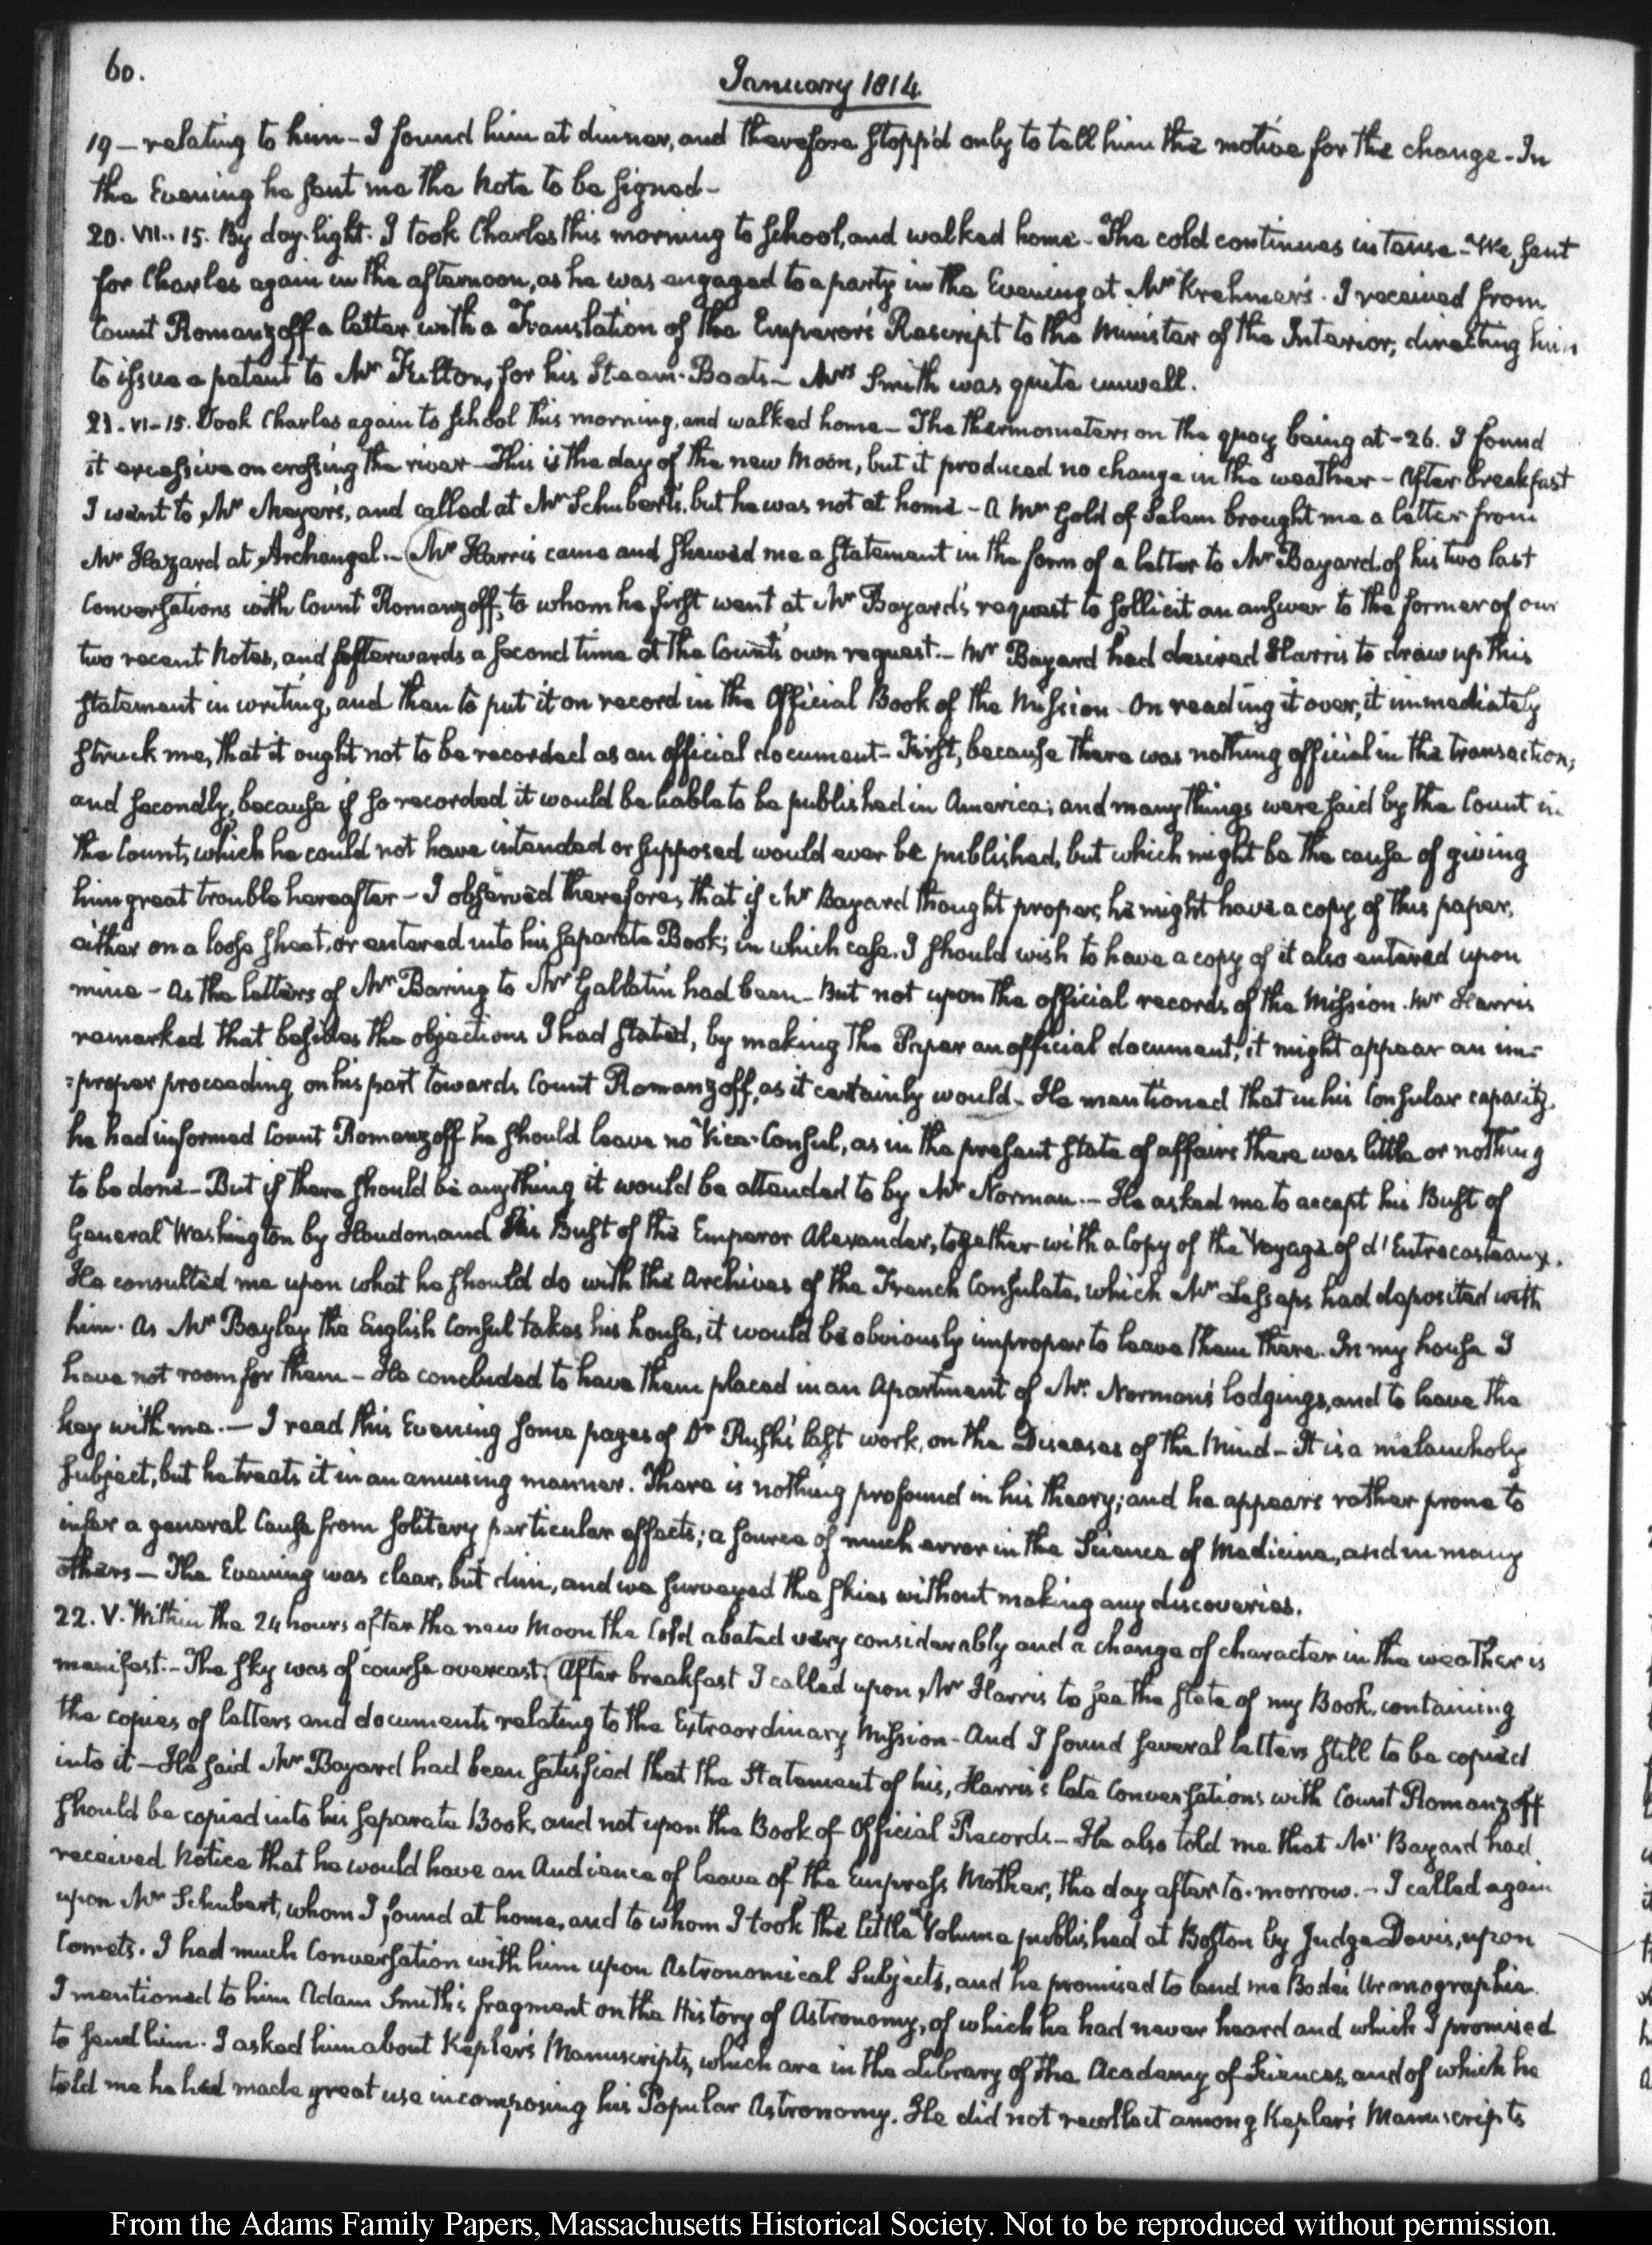 60.
January 1814.
19 — relating to him - I found him at dinner, and therefore stopp'd only to tell him the motive for the change - In
the Evening he sent me the Note to be signed -
20. VII.. 15. By day-light. I took Charles this morning to School, and walked home - The cold continues intense - We sent
for Charles again in the afternoon, as he was engaged to a party in the Evening at Mr Krehmer's. I received from
Count Romanzoff a letter with a Translation of the Emperor's Rescript to the Minister of the Interior, directing him
to issue a patent to Mr Fulton, for his Steam-Boats - Mrs Smith was quite unwell.
21. VI-15. Took Charles again to School this morning, and walked home - The thermometers on the quay being at -26. I found
it excessive on crossing the river - This is the day of the new Moon, but it produced no change in the weather - After breakfast
I went to Mr Meyer's, and called at Mr Schubert's, but he was not at home - A Mr Gold of Salem brought me a letter from
Mr Hazard at Archangel.. Mr Harris came and shewed me a statement in the form of a letter to Mr Bayard of his two last
Conversations with Count Romanzoff; to whom he first went at Mr Bayard's request to sollicit an answer to the former of our
two recent Notes, and afterwards a second time at the Count's own request. - Mr Bayard had desired Harris to draw up this
statement in writing, and then to put it on record in the Official Book of the Mission - On reading it over, it immediately
struck me, that it ought not to be recorded as an official document - First, because there was nothing official in the transaction;
and secondly, because if so recorded it would be liable to be published in America; and many things were said by the Count in
the Count, which he could not have intended or supposed would ever be published, but which might be the cause of giving
him great trouble hereafter - I observed therefore, that if Mr Bayard thought proper, he might have a copy of this paper,
either on a loose sheet, or entered into his separate Book; in which case. I should wish to have a copy of it also entered upon
mine - As the letters of Mr Baring to Mr Gallatin had been - But not upon the official records of the Mission. Mr Harris
remarked that besides the objections I had stated, by making the Paper an official document, it might appear an im-
:proper proceeding on his part towards Count Romanzoff, as it certainly would - He mentioned that in his Consular capacity,
he had informed Count Romanzoff he should leave no Vice-Consul, as in the present state of affairs there was little or nothing
to be done - But if there should be anything it would be attended to by Mr Norman.. - He asked me to accept his Bust of
General Washington by Houdon, and his Bust of the Emperor Alexander, together with a Copy of the Voyage of d'Entrecasteaux.
He consulted me upon what he should do with the Archives of the French Consulate, which Mr Lesseps had deposited with
him. As Mr Bayley the English Consul takes his house, it would be obviously improper to leave them there. In my house I
have not room for them - He concluded to have them placed in an Apartment of Mr. Norman's lodgings, and to leave the
key with me. — I read this Evening some pages of Dr Rush's last work, on the Diseases of the Mind - It is a melancholy
subject, but he treats it in an amusing manner. There is nothing profound in his theory; and he appears rather prone to
infer a general Cause from solitary particular effects; a source of much error in the Science of Medicine, and in many
others — The Evening was clear, but dim, and we surveyed the skies without making any discoveries.
22. V. Within the 24 hours after the new Moon the Cold abated very considerably and a change of character in the weather is
manifest. - The sky was of course overcast. After breakfast I called upon Mr Harris to see the state of my Book, containing
the copies of letters and documents relating to the Extraordinary Mission - And I found several letters still to be copied
into it — He said Mr Bayard had been satisfied that the Statement of his, Harris's late Conversations with Count Romanzoff
should be copied into his separate Book, and not upon the Book of Official Records - He also told me that Mr Bayard had
received Notice that he would have an Audience of leave of the Empress Mother, the day after to-morrow. - I called again
upon Mr Schubert, whom I found at home, and to whom I took the little Volume published at Boston by Judge Davis, upon
Comets. I had much Conversation with him upon Astronomical Subjects, and he promised to lend me Bode's Uranographia.
I mentioned to him Adam Smith's fragment on the History of Astronomy, of which he had never heard and which I promised
to send him. I asked him about Kepler's Manuscripts, which are in the Library of the Academy of Sciences, and of which he
told me he had made great use in composing his Popular Astronomy. He did not recollect among Kepler's Manuscripts
From the Adams Family Papers, Massachusetts Historical Society. Not to be reproduced without permission.